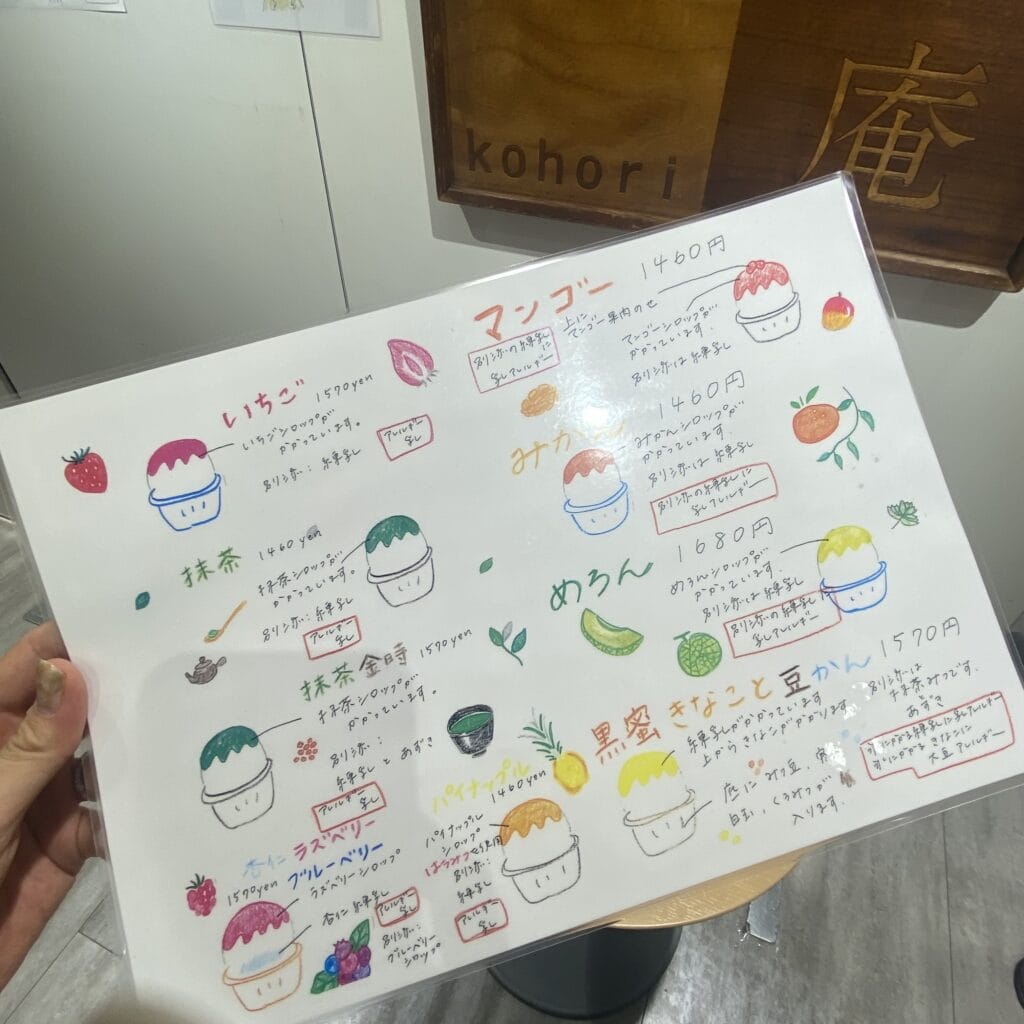 kohori
庵
いちご 1570yen
いちごシロップが
かかっています。
別添: 練乳
アレルギー
乳
抹茶 1460yen
抹茶シロップが
かかっています。
別添: 練乳
アレルギー
乳
抹茶金時 1570yen
抹茶シロップが
かかっています。
別添:
練乳とあずき
アレルギー
乳
杏仁ラズベリー
ブルーベリー
1570yen
ラズベリーシロップ
杏仁練乳
アレルギー
乳
別添:
ブルーベリー
シロップ
マンゴー 1460円
上に
マンゴー果肉のせ
マンゴーシロップが
かかっています.
別添は練乳
別添の練乳
に
乳アレルギー
1460円
みかんシロップが
かかっています.
別添は練乳
別添の練乳に
乳アレルギー
めろん 1680円
めろんシロップが
かかっています.
別添は練乳
別添の練乳に
乳アレルギー
パイナップル
1460yen
パイナップル
シロップ
はちみつ使用
別添:
練乳
アレルギー
乳
黒蜜きなこと豆かん 1570円
練乳がかかっています
上からきなこがかかります
底にみつ豆、
白玉、くろみつが
入ります.
別添は
抹茶みつです.
あずき
大豆アレルギー